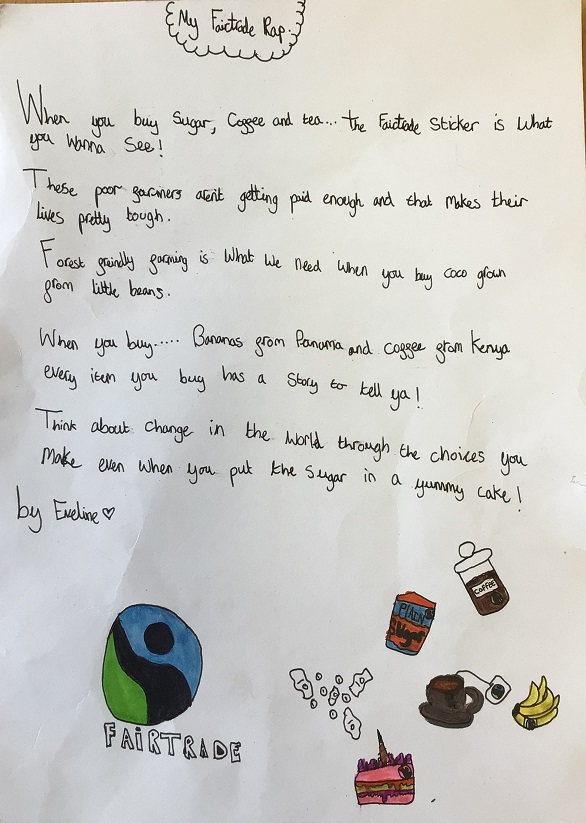 My Fairtrade Rap.
When you buy Sugar, Coffee and tea... the Fairtrade Sticker is What
you Wanna See!
These poor farmers arent getting paid enough and that Makes their
lives pretty tough.
Forest freindly farming is What We need When you buy coco grown
from little beans.
When you buy..... Bananas from Panama and coffee from Kenya
every item you buy has a Story to tell ya!
Think about change in the World through the choices you
Make even When you put the Sugar in a yummy cake!
by Eveline♡
COFFEE
PLAIN
Sugar
FAiRTRADE